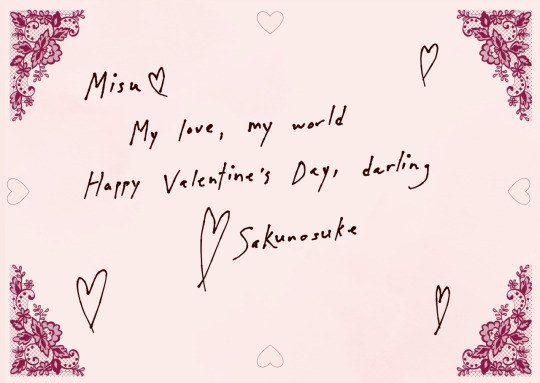 Misu♡
My love, my world
Happy Valentine's Day, darling
♡ Sakunosuke